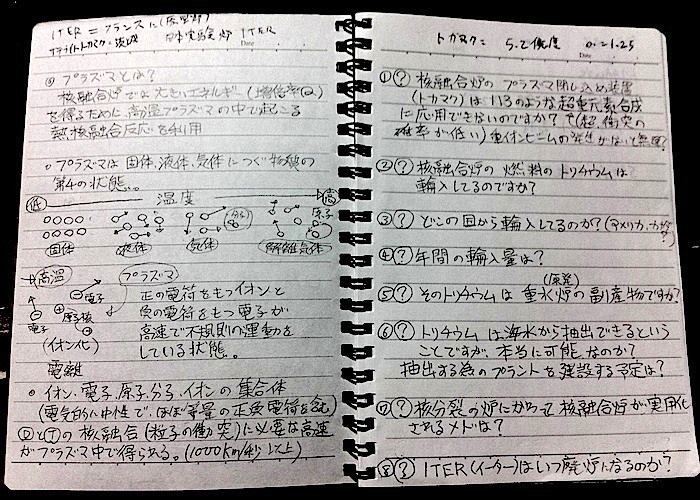 ITER = フランスに(原型炉)
サテライトトカマク = 茨城 日本実験炉 ITER
Date
◎プラズマとは?
核融合炉では大きいエネルギー(増倍率Q)
を得るために高温プラズマの中で起こる
熱核融合反応を利用
○プラズマは固体、液体、気体につぐ物質の
第4の状態。
低 温度 高
分子 原子
固体 液体 気体 (解離気体)
高温 プラズマ
電子
原子核
電子
(イオン化)
電離
正の電荷をもつイオンと
負の電荷をもつ電子が
高速で不規則の運動を
している状態。
・イオン・電子、原子、分子、イオンの集合体
(電気的に中性で、ほぼ等量の正負電荷を含む)
DとTの核融合(粒子の衝突)に必要な高速
がプラズマ中で得られる。(1000km/秒以上)
トカマク= 5.2億度 0.-1.25
Date
①?核融合炉のプラズマ閉じ込め装置
(トカマク)は113のような超重元素合成
に応用できないのですか?(衝突の
確率が低い)重イオンビームの
②?核融合炉の燃料のトリチウムは
輸入してるのですか?
③?どこの国から輸入してるのか?(アメリカ、カナダ?)
④?年間の輸入量は?
(原発)
⑤?そのトリチウムは重水炉の副産物ですか?
⑥?トリチウムは海水から抽出できるという
ことですが、本当に可能なのか?
抽出する為のプラントを建設する予定は?
⑦?核分裂の炉にかわって核融合炉が実用化
されるメドは?
⑧?ITER(イーター)はいつ廃炉になるのか?